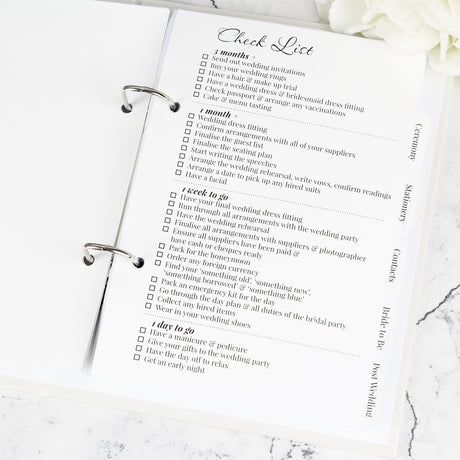 Check List
3 months +
Send out wedding invitations
Buy your wedding rings
Have a hair & make up trial
Have a wedding dress & bridesmaid dress fitting
Check passport & arrange any vaccinations
Cake & menu tasting
1 month +
Wedding dress fitting
Confirm arrangements with all of your suppliers
Finalise the guest list
Finalise the seating plan
Start writing the speeches
Arrange the wedding rehearsal, write vows, confirm readings
Arrange a date to pick up any hired suits
Have a facial
1 week to go
Have your final wedding dress fitting
Run through all arrangements with the wedding party
Have the wedding rehearsal
Finalise all arrangements with suppliers & photographer
Ensure all suppliers have been paid &
have cash or cheques ready
Pack for the honeymoon
Order any foreign currency
Find your 'something old', 'something new',
'something borrowed' & 'something blue'
Pack an emergency kit for the day
Go through the day plan & all duties of the bridal party
Collect any hired items
Wear in your wedding shoes
1 day to go
Have a manicure & pedicure
Give your gifts to the wedding party
Have the day off to relax
Get an early night
Ceremony
Stationery
Contacts
Bride to Be
Post Wedding